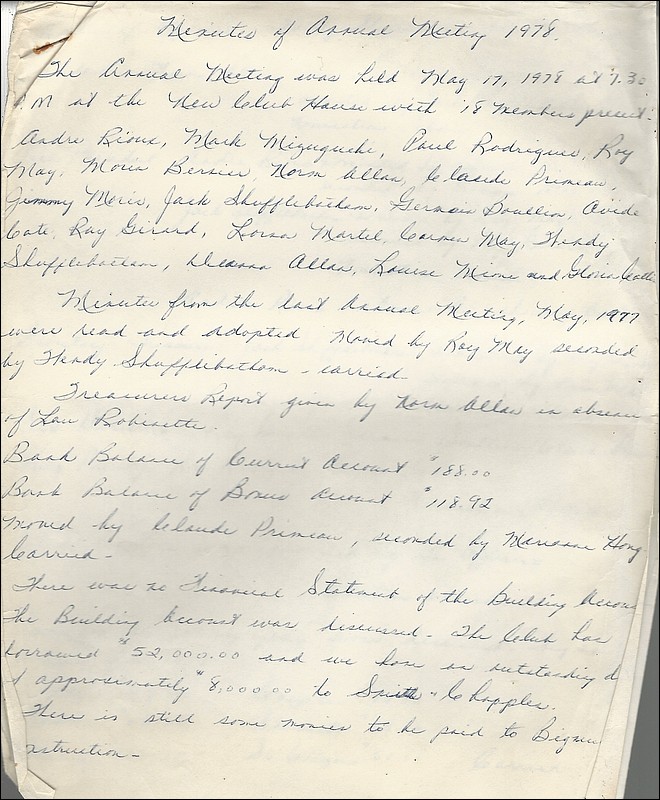 Minutes of Annual Meeting 1978.
The Annual Meeting was held May 17, 1978 at 7.30
PM at the New Club House with 18 members present:
Andre Rioux, Mark Paul Rodrigues, Roy
May, Moria Bernier, Norm Allan, Claude Primeau,
Jimmy Jack Shufflebotham, Germain Avide
Cote, Ray Girard, Lorna Martel, Carmen May, Wendy
Shufflebotham, Deanna Allan, Louise and Gloria
Minutes from the last Annual Meeting, May, 1977
were read and adopted Moved by Roy May seconded
by Wendy Shufflebotham - carried
Treasurers Report given by Norm Allan in absence
of Lou Robinette.
Bank Balance of Current Account $188.00
Bank Balance of Bonus Account $118.92
Moved by Claude Primeau, seconded by Marianne Hong
Carried -
There was no Financial Statement of the Building Accou
The Building Account was discussed - The Club has
borrowed $52,000.00 and we have an outstanding d
of approximately $8,000.00 to Smith & Chapples.
There is still some monies to be paid to
nstruction -